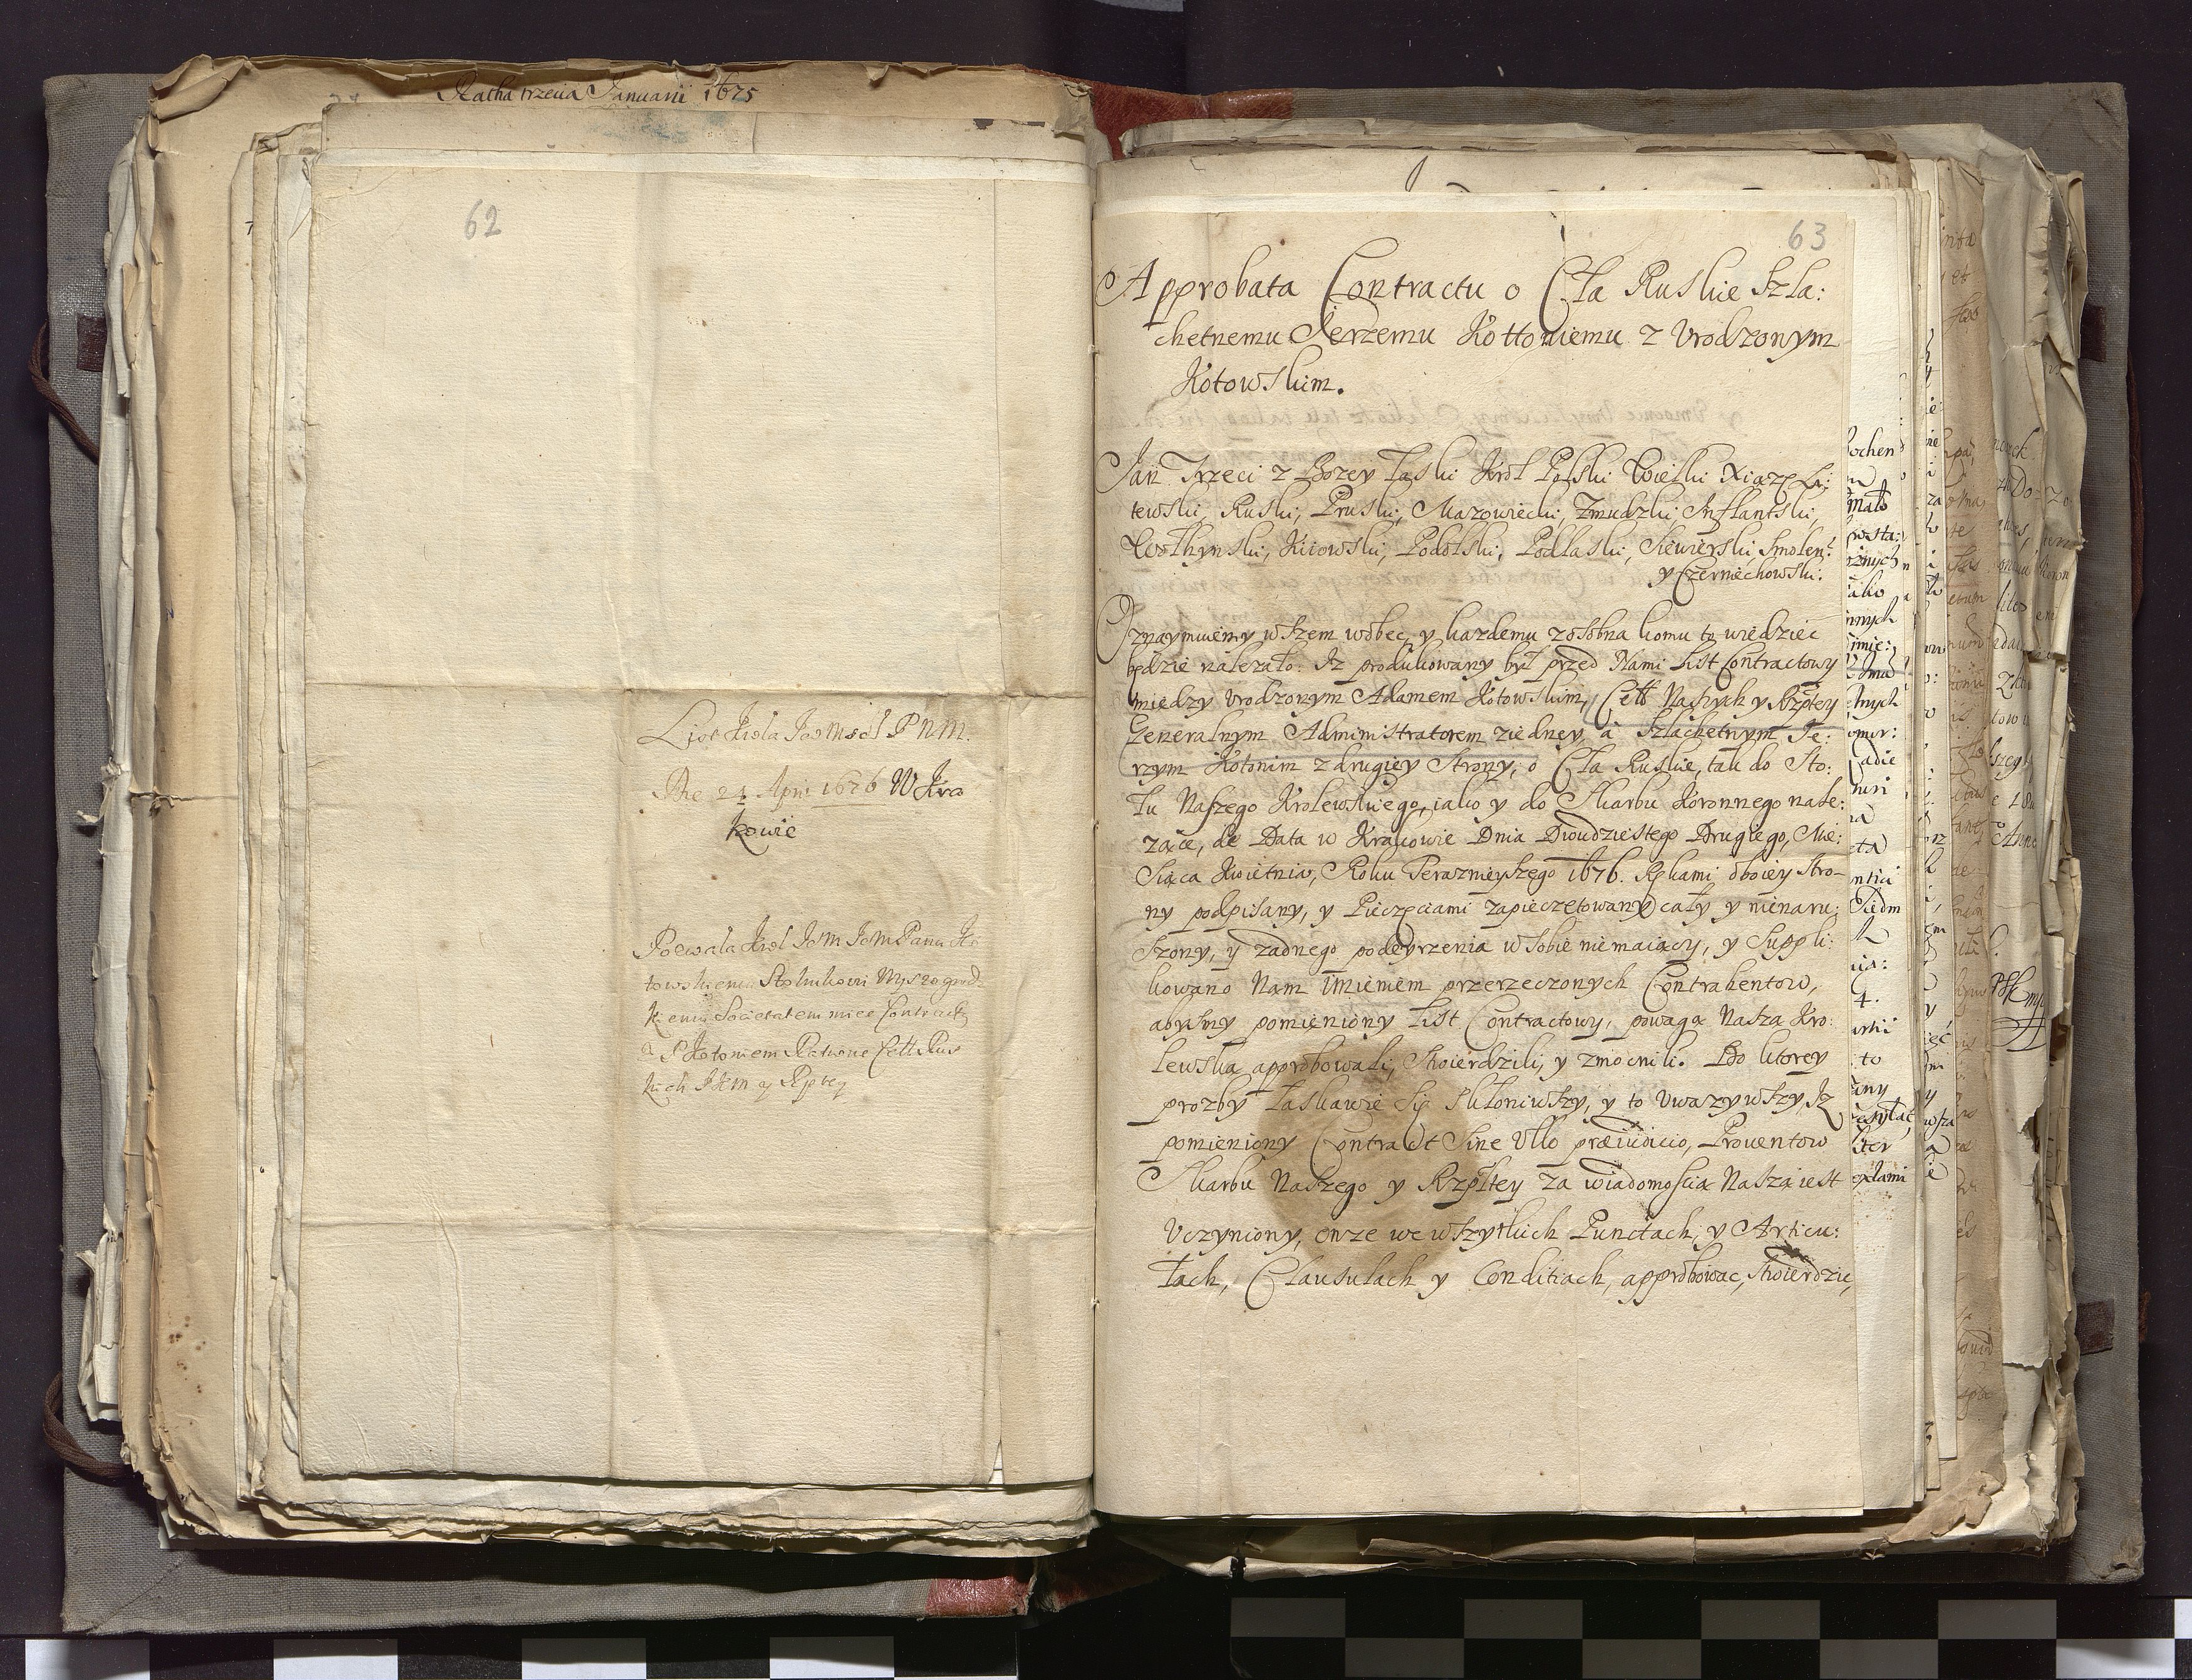 Ratha trzecia Januarii 1675
62
List Krola Jeo Msci P N M.
Die 21 Apri 1676 W Kra
kowie
Pozwala Krol Jom JemPanu Ko
towskiemu Stolnikowi Wyszogrodz
kiemu Societatem miec Contractu
a P Kotoniem Ratione Cell Rus
kich JKM y Rptey
63
Approbata Contractu o Cła Ruskie Szla:
chetnemu Jerzemu Kottoniemu z Vrodzonym
Kotowskim.
Jan Trzeci z Bozey Łaski Krol Polski Wielki Xiąze Li:
tewski, Ruski, Pruski, Mazowiecki, Zmudzki, Inflantski,
Wołhynski, Kiiowski, Podolski, Podlaski, Siewierski Smolen:
y Czerniechowski.
Oznaymuiemy wszem wobec, y kazdemu zosobna komu to wiedziec
będzie nalezało: Iz produkowany był przed Nami List Contractowy
między Vrodzonym Adamem Kotowskim, Cełł Naszych y Rzptey
Generalnym Administratorem ziedney, a Szlachetnym Je:
rzym Kotonim z drugiey Strony, o Cła Ruskie, tak do Sto:
łu Naszego Krolewskiego, iako y do Skarbu Koronnego nale:
zące, de Data w Krakowie Dnia Dwudziestego Drugiego, Mie:
Siąca Kwietnia, Roku Terazniejszego 1676. Rękami oboiey Stro-
ny podpisany, y Pieczęciami zapieczętowany cały y nienaru:
Szony, y zadnego podeyrzenia w Sobie niemaiący, y Suppli:
kowano Nam Imieniem przerzeczonych Contrahentow,
abyśmy pomieniony List Contractowy, powagą Naszą Kro:
lewską approbowali, Stwierdzili, y zmocnili. Do ktorey
prozby Łaskawie Się Skłoniwszy, y to Vwazywszy, Iz
pomieniony Contract Sine Vllo præiudicio, Prouentow
Skarbu Naszego y Rzpltey za wiadomoscią Naszą iest
Vczyniony, onze we wszytkich Punctach, y Articu:
łach, Clausulach y Conditiach, approbowac, Stwierdzic,